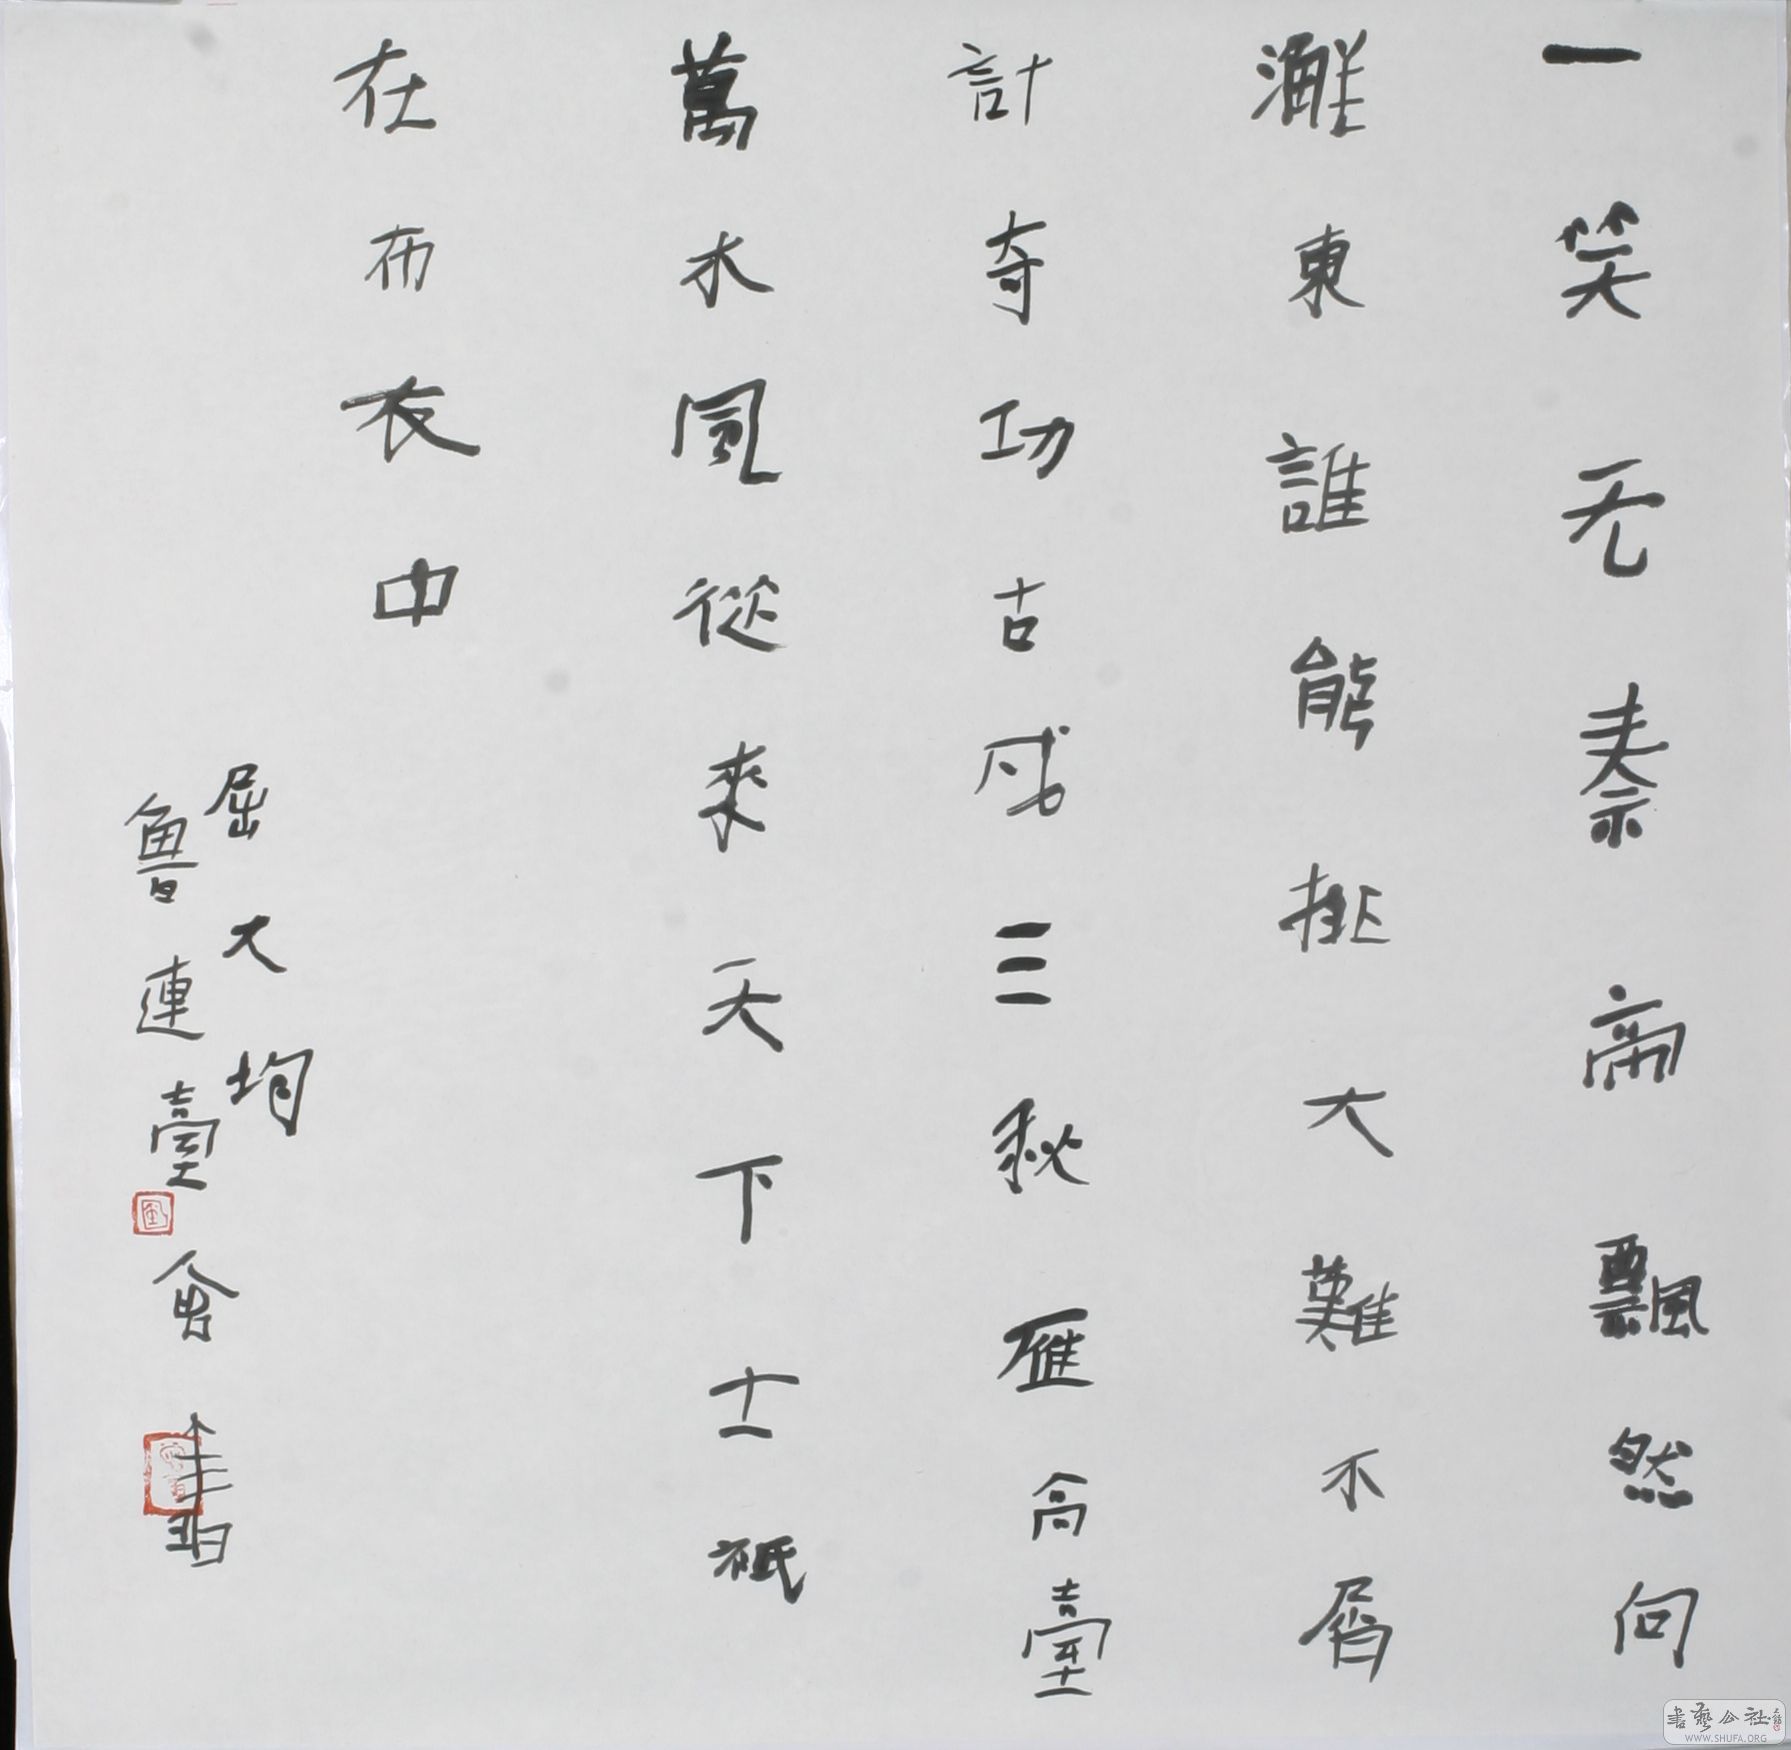 一笑无秦帝飄然向
東誰能排大難不屑
計奇功古戍三秋雁高臺
萬木風從來天下士祇
在布衣中
屈大均
魯連臺 書
書藝公社
WWW.SHUFA.ORG